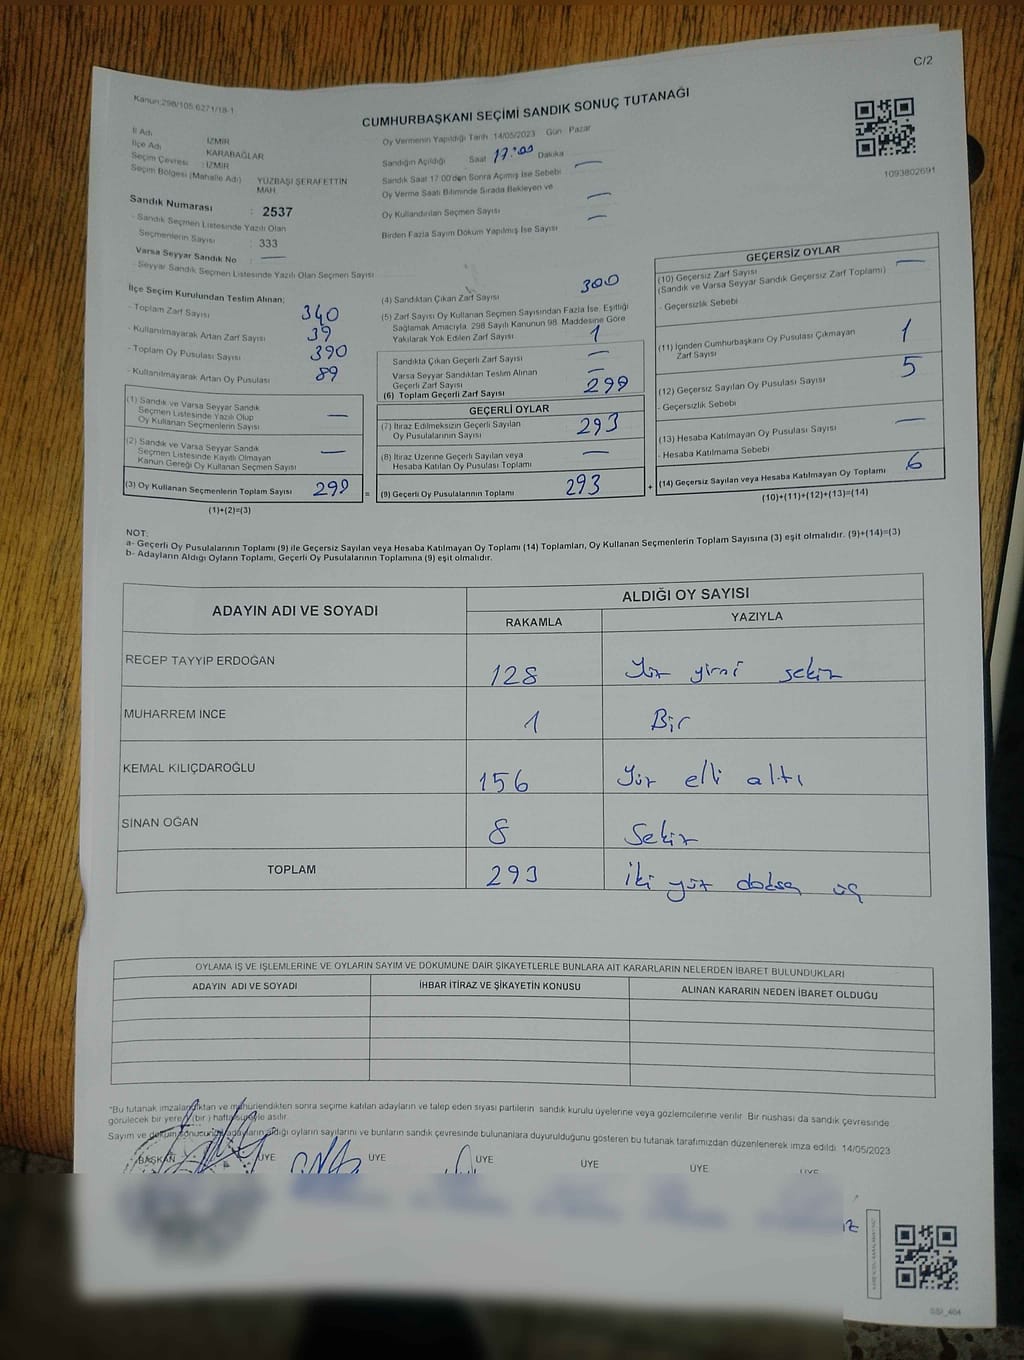 C/2
Kanun:298/105:6271/18-1
CUMHURBAŞKANI SEÇİMİ SANDIK SONUÇ TUTANAĞI
İl Adı : İZMİR
İlçe Adı : KARABAĞLAR
Seçim Çevresi : İZMİR
Seçim Bölgesi (Mahalle Adı) : YÜZBAŞI ŞERAFETTİN MAH.
Sandık Numarası : 2537
- Sandık Seçmen Listesinde Yazılı Olan
Seçmenlerin Sayısı : 333
Varsa Seyyar Sandık No : —
- Seyyar Sandık Seçmen Listesinde Yazılı Olan Seçmen Sayısı
Oy Vermenin Yapıldığı Tarih 14/05/2023 Gün Pazar
Sandığın Açıldığı Saat 17:00 Dakika
Sandık Saat 17.00'den Sonra Açımış İse Sebebi —
Oy Verme Saati Bitiminde Sırada Bekleyen ve
Oy Kullandırılan Seçmen Sayısı —
Birden Fazla Sayım Döküm Yapılmış İse Sayısı —
1093802691
İlçe Seçim Kurulundan Teslim Alınan;
- Toplam Zarf Sayısı 340
- Kullanılmayarak Artan Zarf Sayısı 39
- Toplam Oy Pusulası Sayısı 390
- Kullanılmayarak Artan Oy Pusulası 89
(1) Sandık ve Varsa Seyyar Sandık
Seçmen Listesinde Yazılı Olup
Oy Kullanan Seçmenlerin Sayısı —
(2) Sandık ve Varsa Seyyar Sandık
Seçmen Listesinde Kayıtlı Olmayan
Kanun Gereği Oy Kullanan Seçmen Sayısı —
(3) Oy Kullanan Seçmenlerin Toplam Sayısı 299 =
(1)+(2)=(3)
(4) Sandıktan Çıkan Zarf Sayısı 300
(5) Zarf Sayısı Oy Kullanan Seçmen Sayısından Fazla İse, Eşitliği
Sağlamak Amacıyla, 298 Sayılı Kanunun 98. Maddesine Göre
Yakılarak Yok Edilen Zarf Sayısı 1
Sandıkta Çıkan Geçerli Zarf Sayısı —
Varsa Seyyar Sandıktan Teslim Alınan
Geçerli Zarf Sayısı —
(6) Toplam Geçerli Zarf Sayısı 299
GEÇERLİ OYLAR
(7) İtiraz Edilmeksizin Geçerli Sayılan
Oy Pusulalarının Sayısı 293
(8) İtiraz Üzerine Geçerli Sayılan veya
Hesaba Katılan Oy Pusulası Toplamı —
(9) Geçerli Oy Pusulalarının Toplamı 293 +
GEÇERSİZ OYLAR
(10) Geçersiz Zarf Sayısı —
(Sandık ve Varsa Seyyar Sandık Geçersiz Zarf Toplamı)
- Geçersizlik Sebebi
(11) İçinden Cumhurbaşkanı Oy Pusulası Çıkmayan
Zarf Sayısı 1
(12) Geçersiz Sayılan Oy Pusulası Sayısı 5
- Geçersizlik Sebebi
(13) Hesaba Katılmayan Oy Pusulası Sayısı —
- Hesaba Katılmama Sebebi
(14) Geçersiz Sayılan veya Hesaba Katılmayan Oy Toplamı 6
(10)+(11)+(12)+(13)=(14)
NOT:
a- Geçerli Oy Pusulalarının Toplamı (9) ile Geçersiz Sayılan veya Hesaba Katılmayan Oy Toplamı (14) Toplamları, Oy Kullanan Seçmenlerin Toplam Sayısına (3) eşit olmalıdır. (9)+(14)=(3)
b- Adayların Aldığı Oyların Toplamı, Geçerli Oy Pusulalarının Toplamına (9) eşit olmalıdır.
ADAYIN ADI VE SOYADI
ALDIĞI OY SAYISI
RAKAMLA YAZIYLA
RECEP TAYYİP ERDOĞAN 128 Yüz yirmi sekiz
MUHARREM İNCE 1 Bir
KEMAL KILIÇDAROĞLU 156 Yüz elli altı
SİNAN OĞAN 8 Sekiz
TOPLAM 293 iki yüz doksan üç
OYLAMA İŞ VE İŞLEMLERİNE VE OYLARIN SAYIM VE DÖKÜMÜNE DAİR ŞİKAYETLERLE BUNLARA AİT KARARLARIN NELERDEN İBARET BULUNDUKLARI
ADAYIN ADI VE SOYADI İHBAR İTİRAZ VE ŞİKAYETİN KONUSU ALINAN KARARIN NEDEN İBARET OLDUĞU
*Bu tutanak imzalandıktan ve mühürlendikten sonra seçime katılan adayların ve talep eden siyasi partilerin sandık kurulu üyelerine veya gözlemcilerine verilir. Bir nüshası da sandık çevresinde
görülecek bir yere 1 (bir ) hafta süreyle asılır.
Sayım ve döküm sonucunda adayların aldığı oyların sayılarını ve bunların sandık çevresinde bulunanlara duyurulduğunu gösteren bu tutanak tarafımızdan düzenlenerek imza edildi. 14/05/2023
BAŞKAN ÜYE ÜYE ÜYE ÜYE ÜYE ÜYE
SSI_464